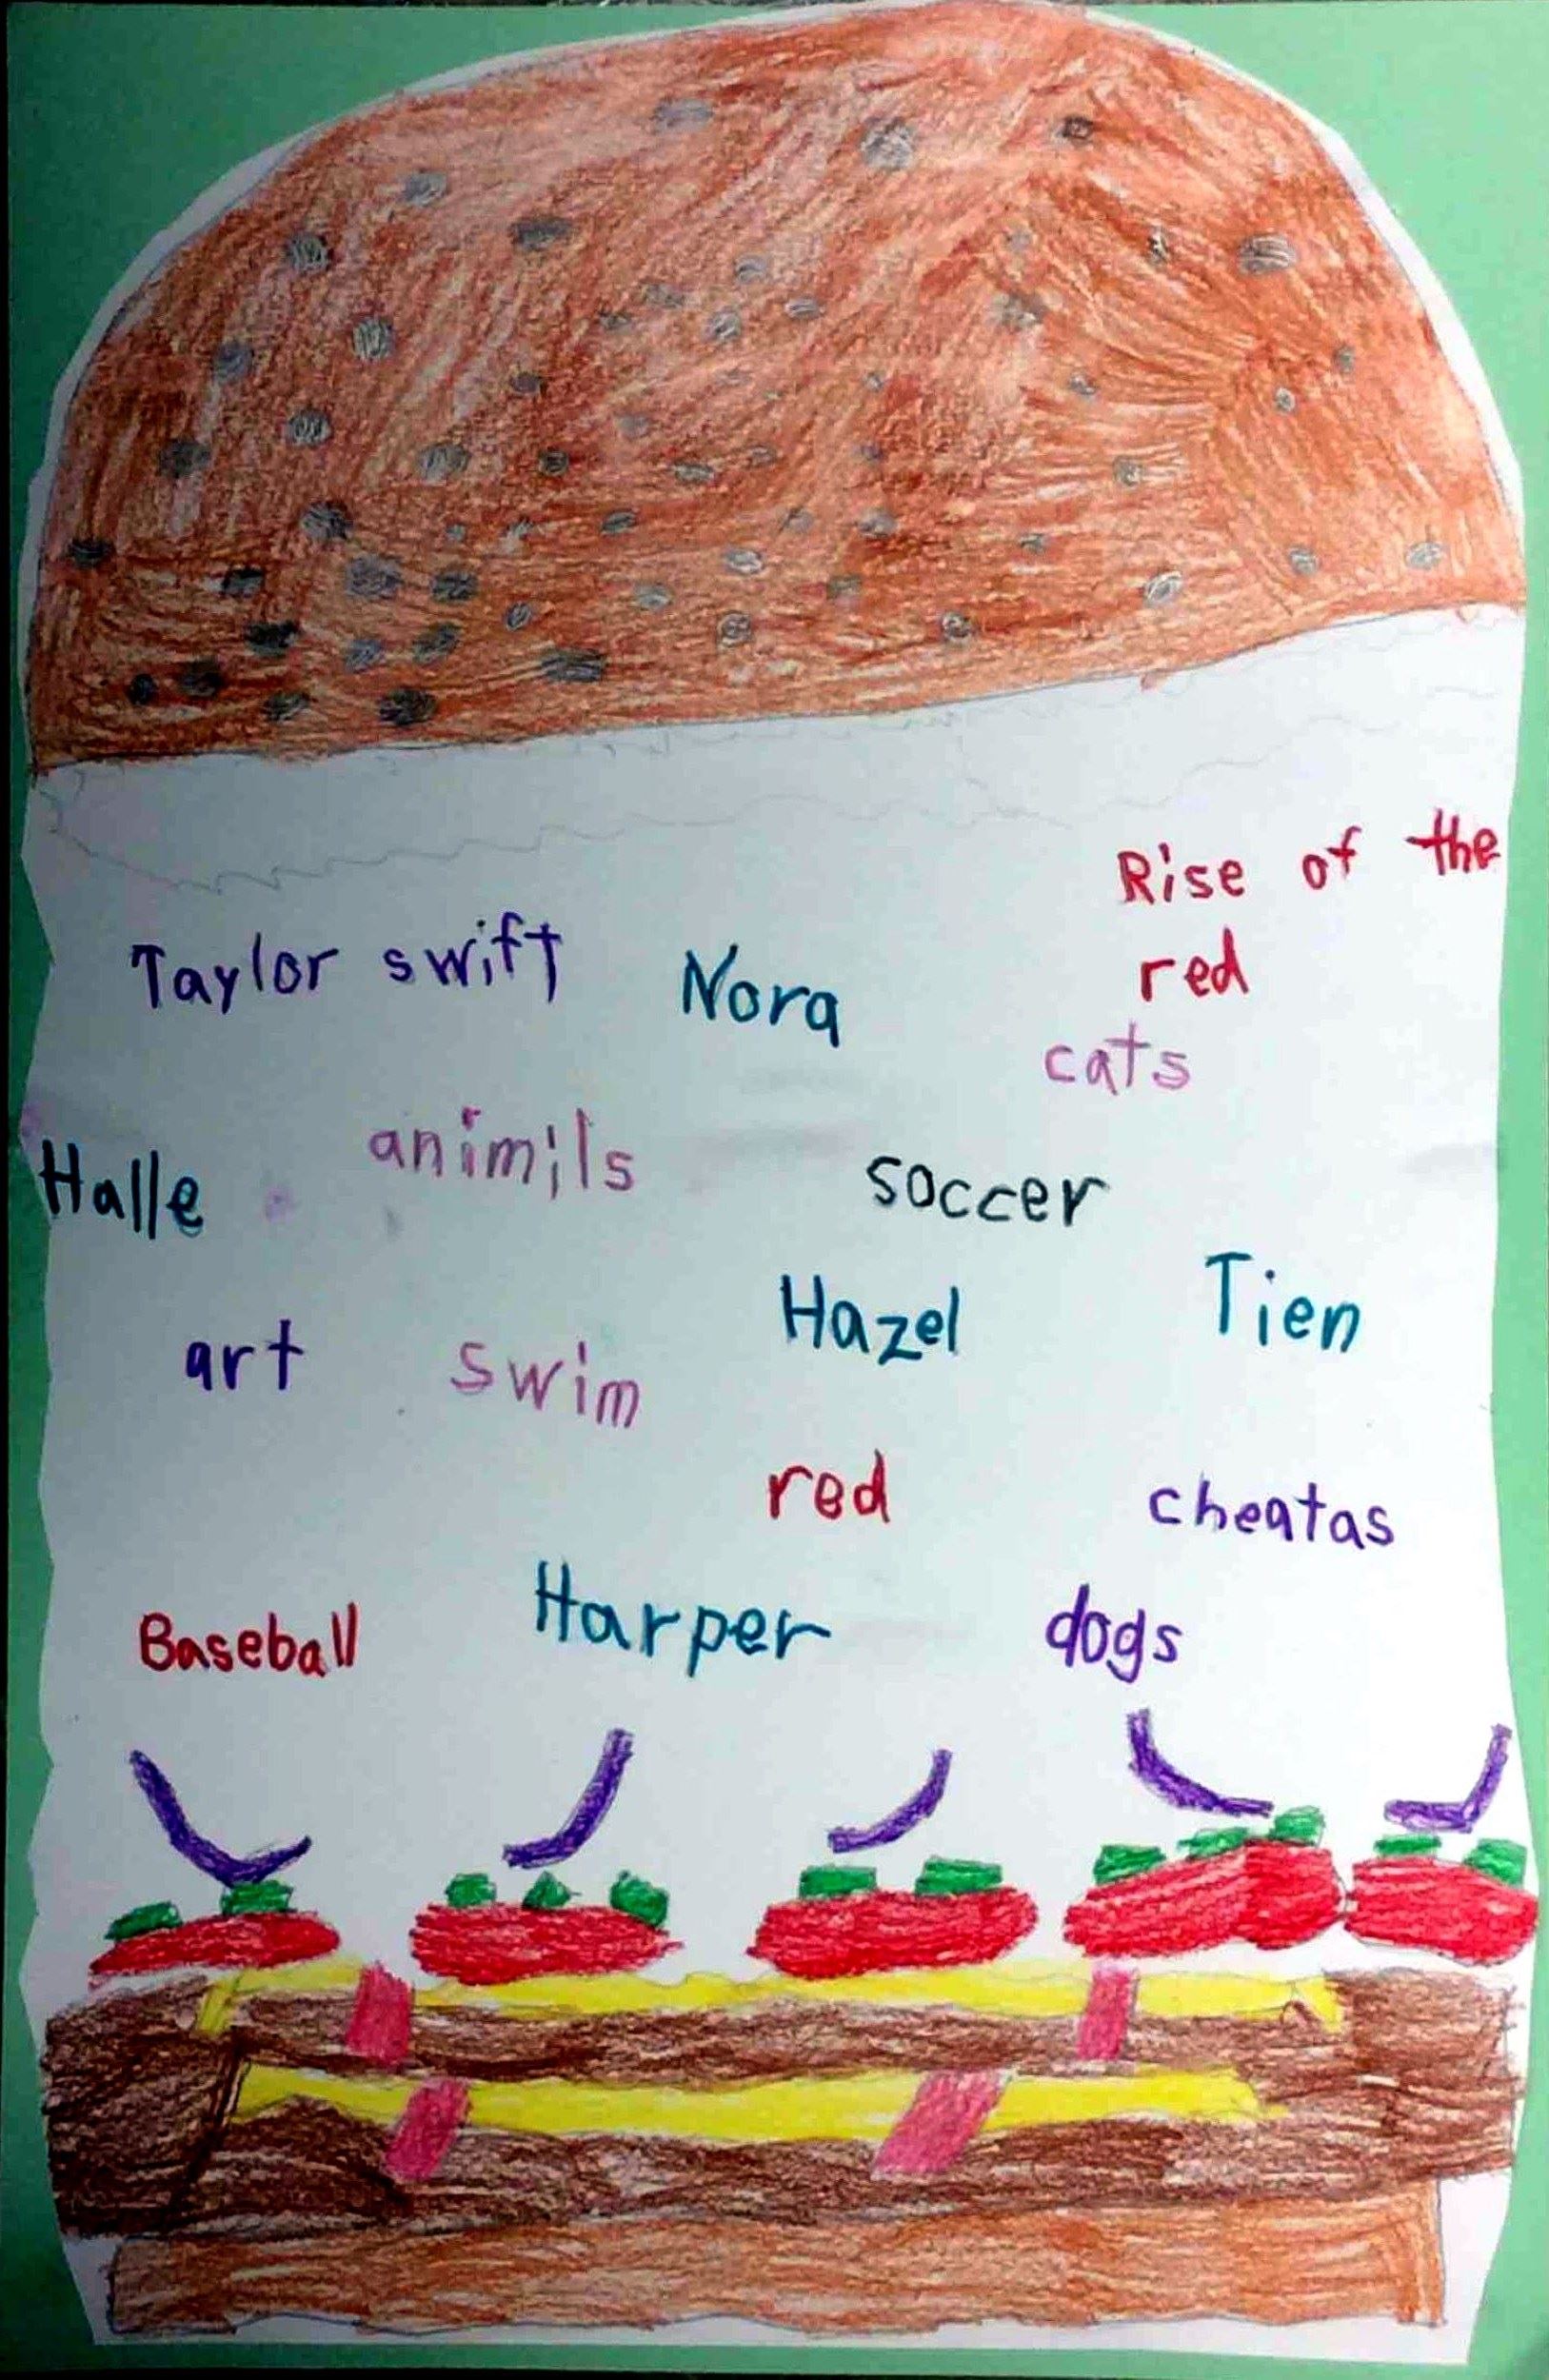 Rise of the
red
Taylor swift
Nora
cats
Halle
animils
soccer
Hazel
Tien
art
swim
red
cheatas
Baseball
Harper
dogs